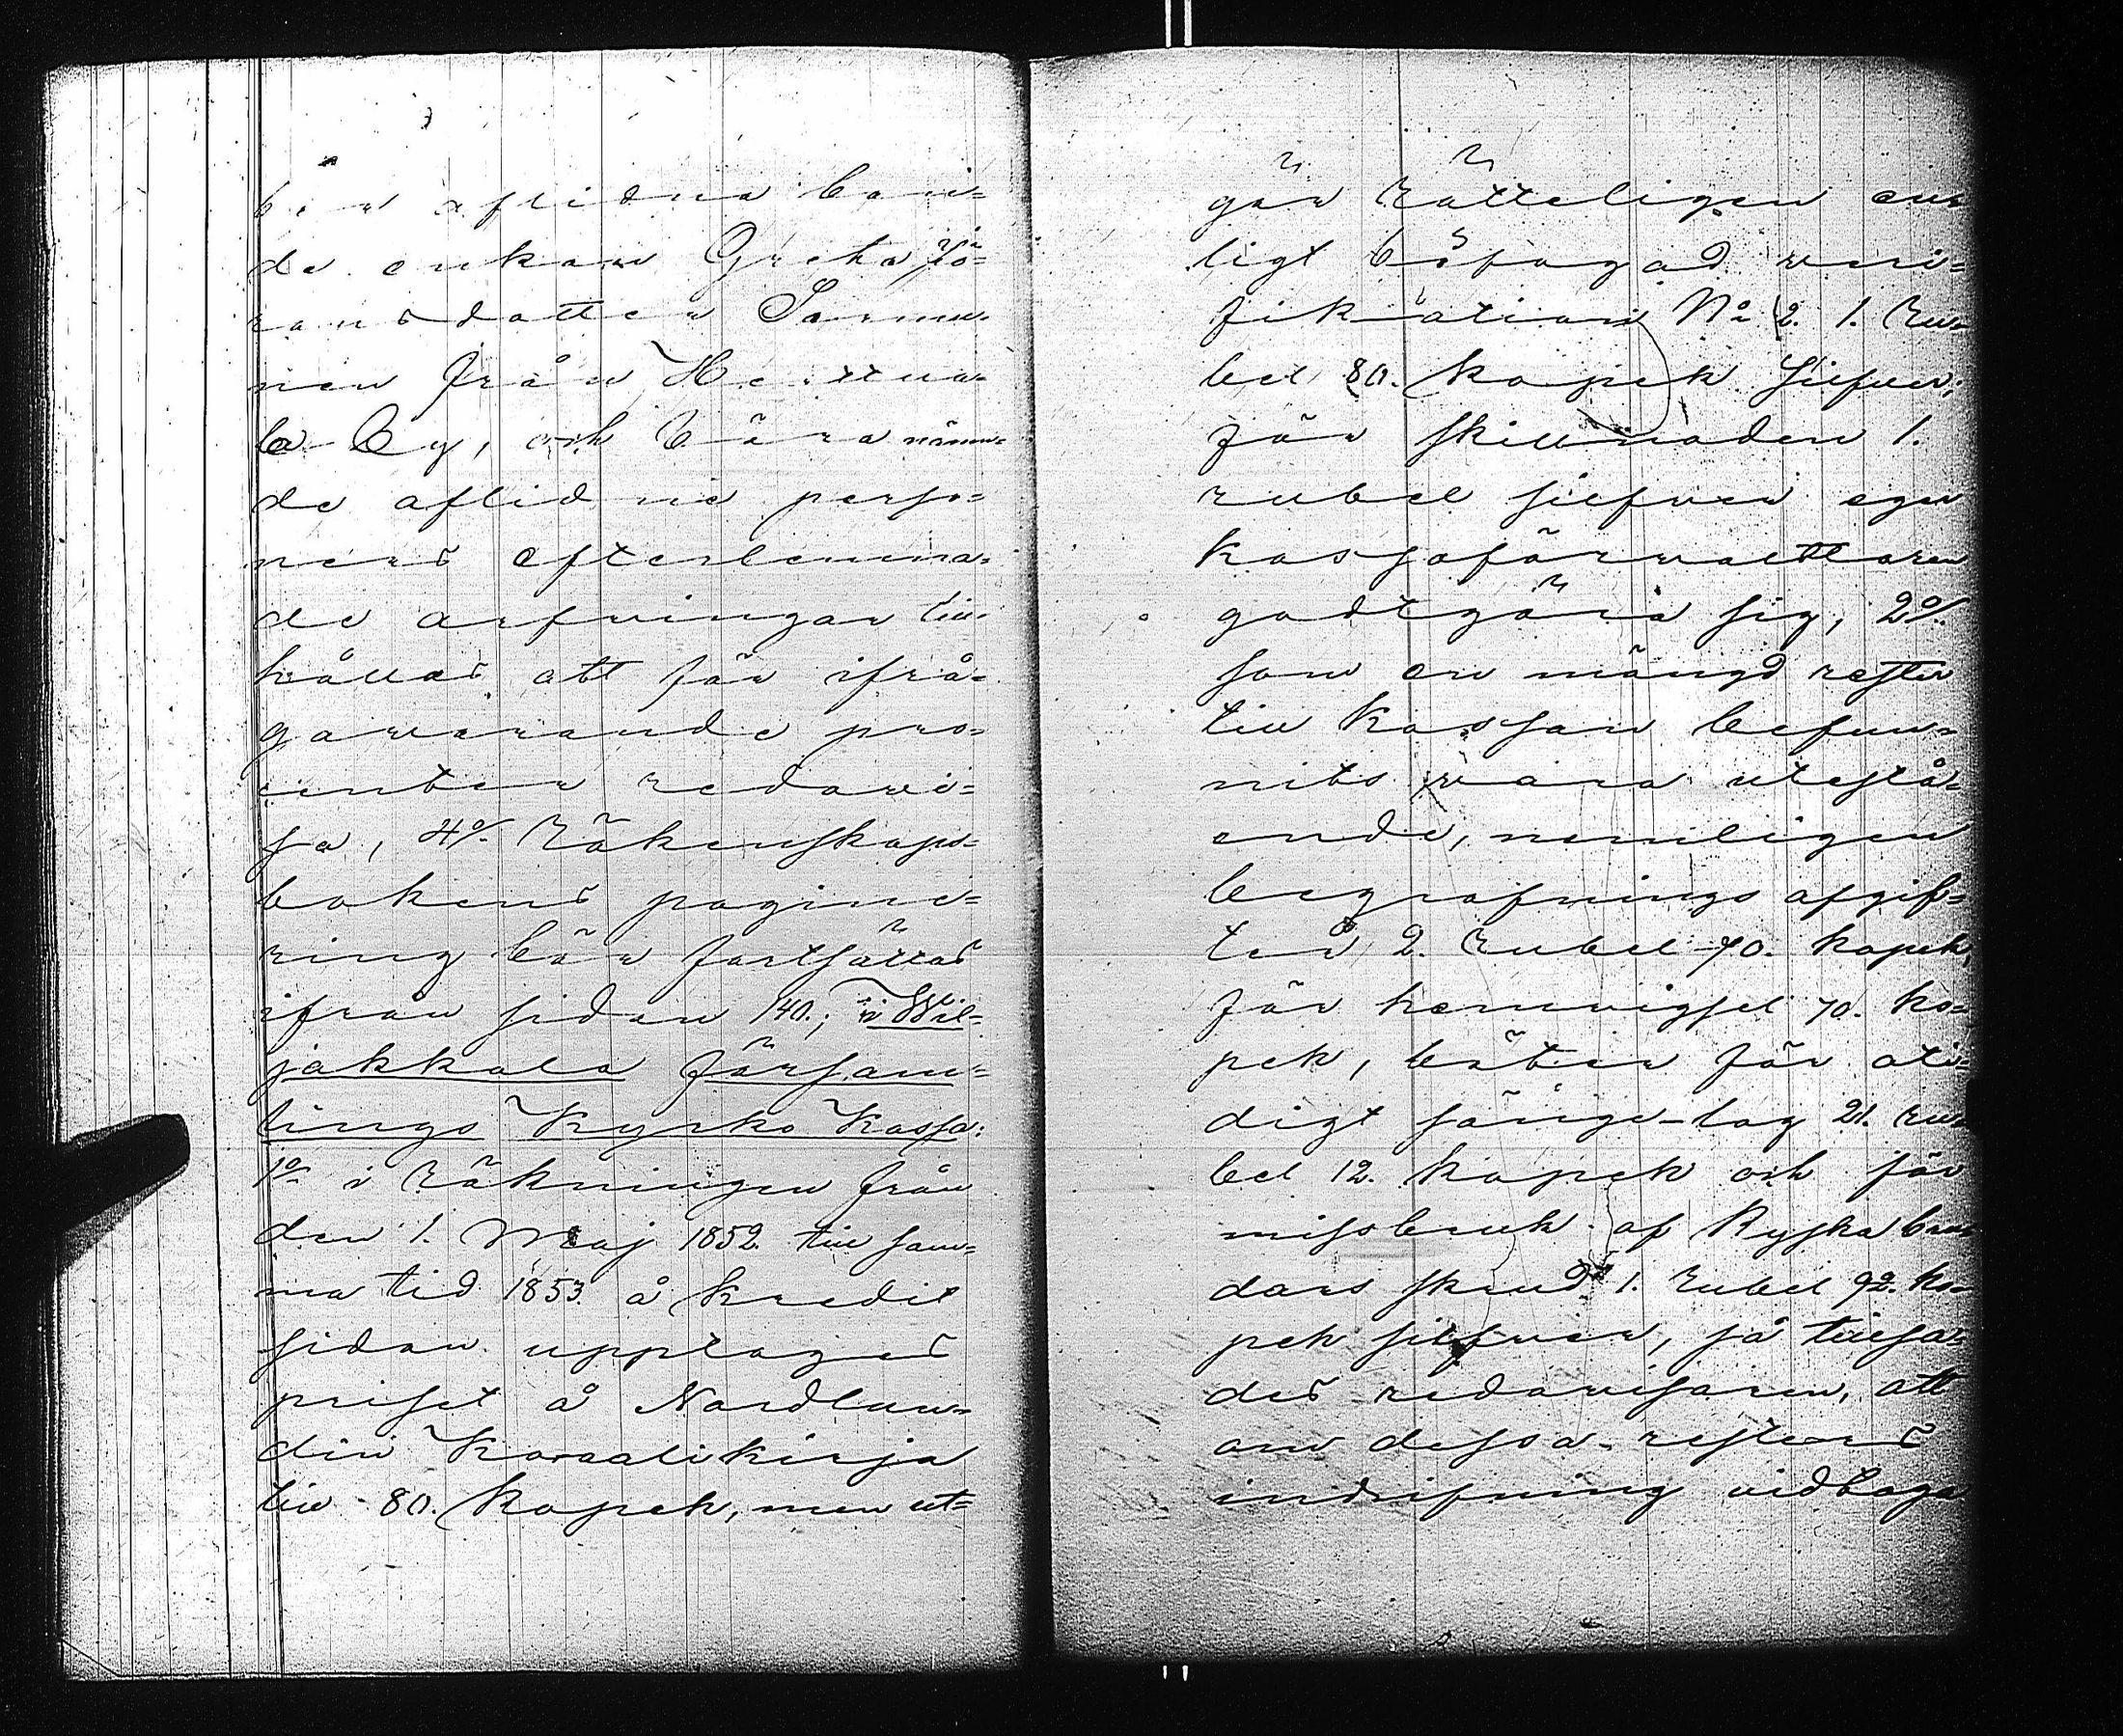 aflidna bon=
de enkan Greta Jö=
ransdotter Sarme=
nen från Herttua=
la by, och böra nämn=
de aflidne perso=
ners efterlemna=
de arfvingar till=
hållas att för ifrå=
gavarande pro=
centen redovi=
sa, 4o/. Räkenskaps=
bokens pagine=
ring bör fortsättas
ifrån sidan 140.; i Wil=
jakkala Försam=
lings Kyrko Kassa:
1o i räkningen från
den 1. Maj 1852. till sam=
ma tid 1853. å Kredit
sidan upptages
priset å Nordlun=
din Koraalikirja
till 80. Kopek, men ut=
gör rätteligen en=
ligt bifogad veri=
fikation No 2. 1. Ru=
bel 80. Kopek Silfver;
för skillnaden 1.
rubel silfver eger
Kassaförvaltaren
godtgöra sig; 2o/.
som en mängd rester
till Kassan befun=
nits vara utestå=
ende, nemligen
begrafnings afgif=
ter 2. Rubel 70. Kopek,
för hemvigsel 70. Ko=
pek, böter för oti=
digt sänge-lag 21. Ru=
bel 12. Kopek och för
missbruk af Kyska bru=
dars skrud 1. Rubel 92. Ko=
pek silfver, så tillsa=
des redovisaren, att
om dessa resters
indrifning vidtaga